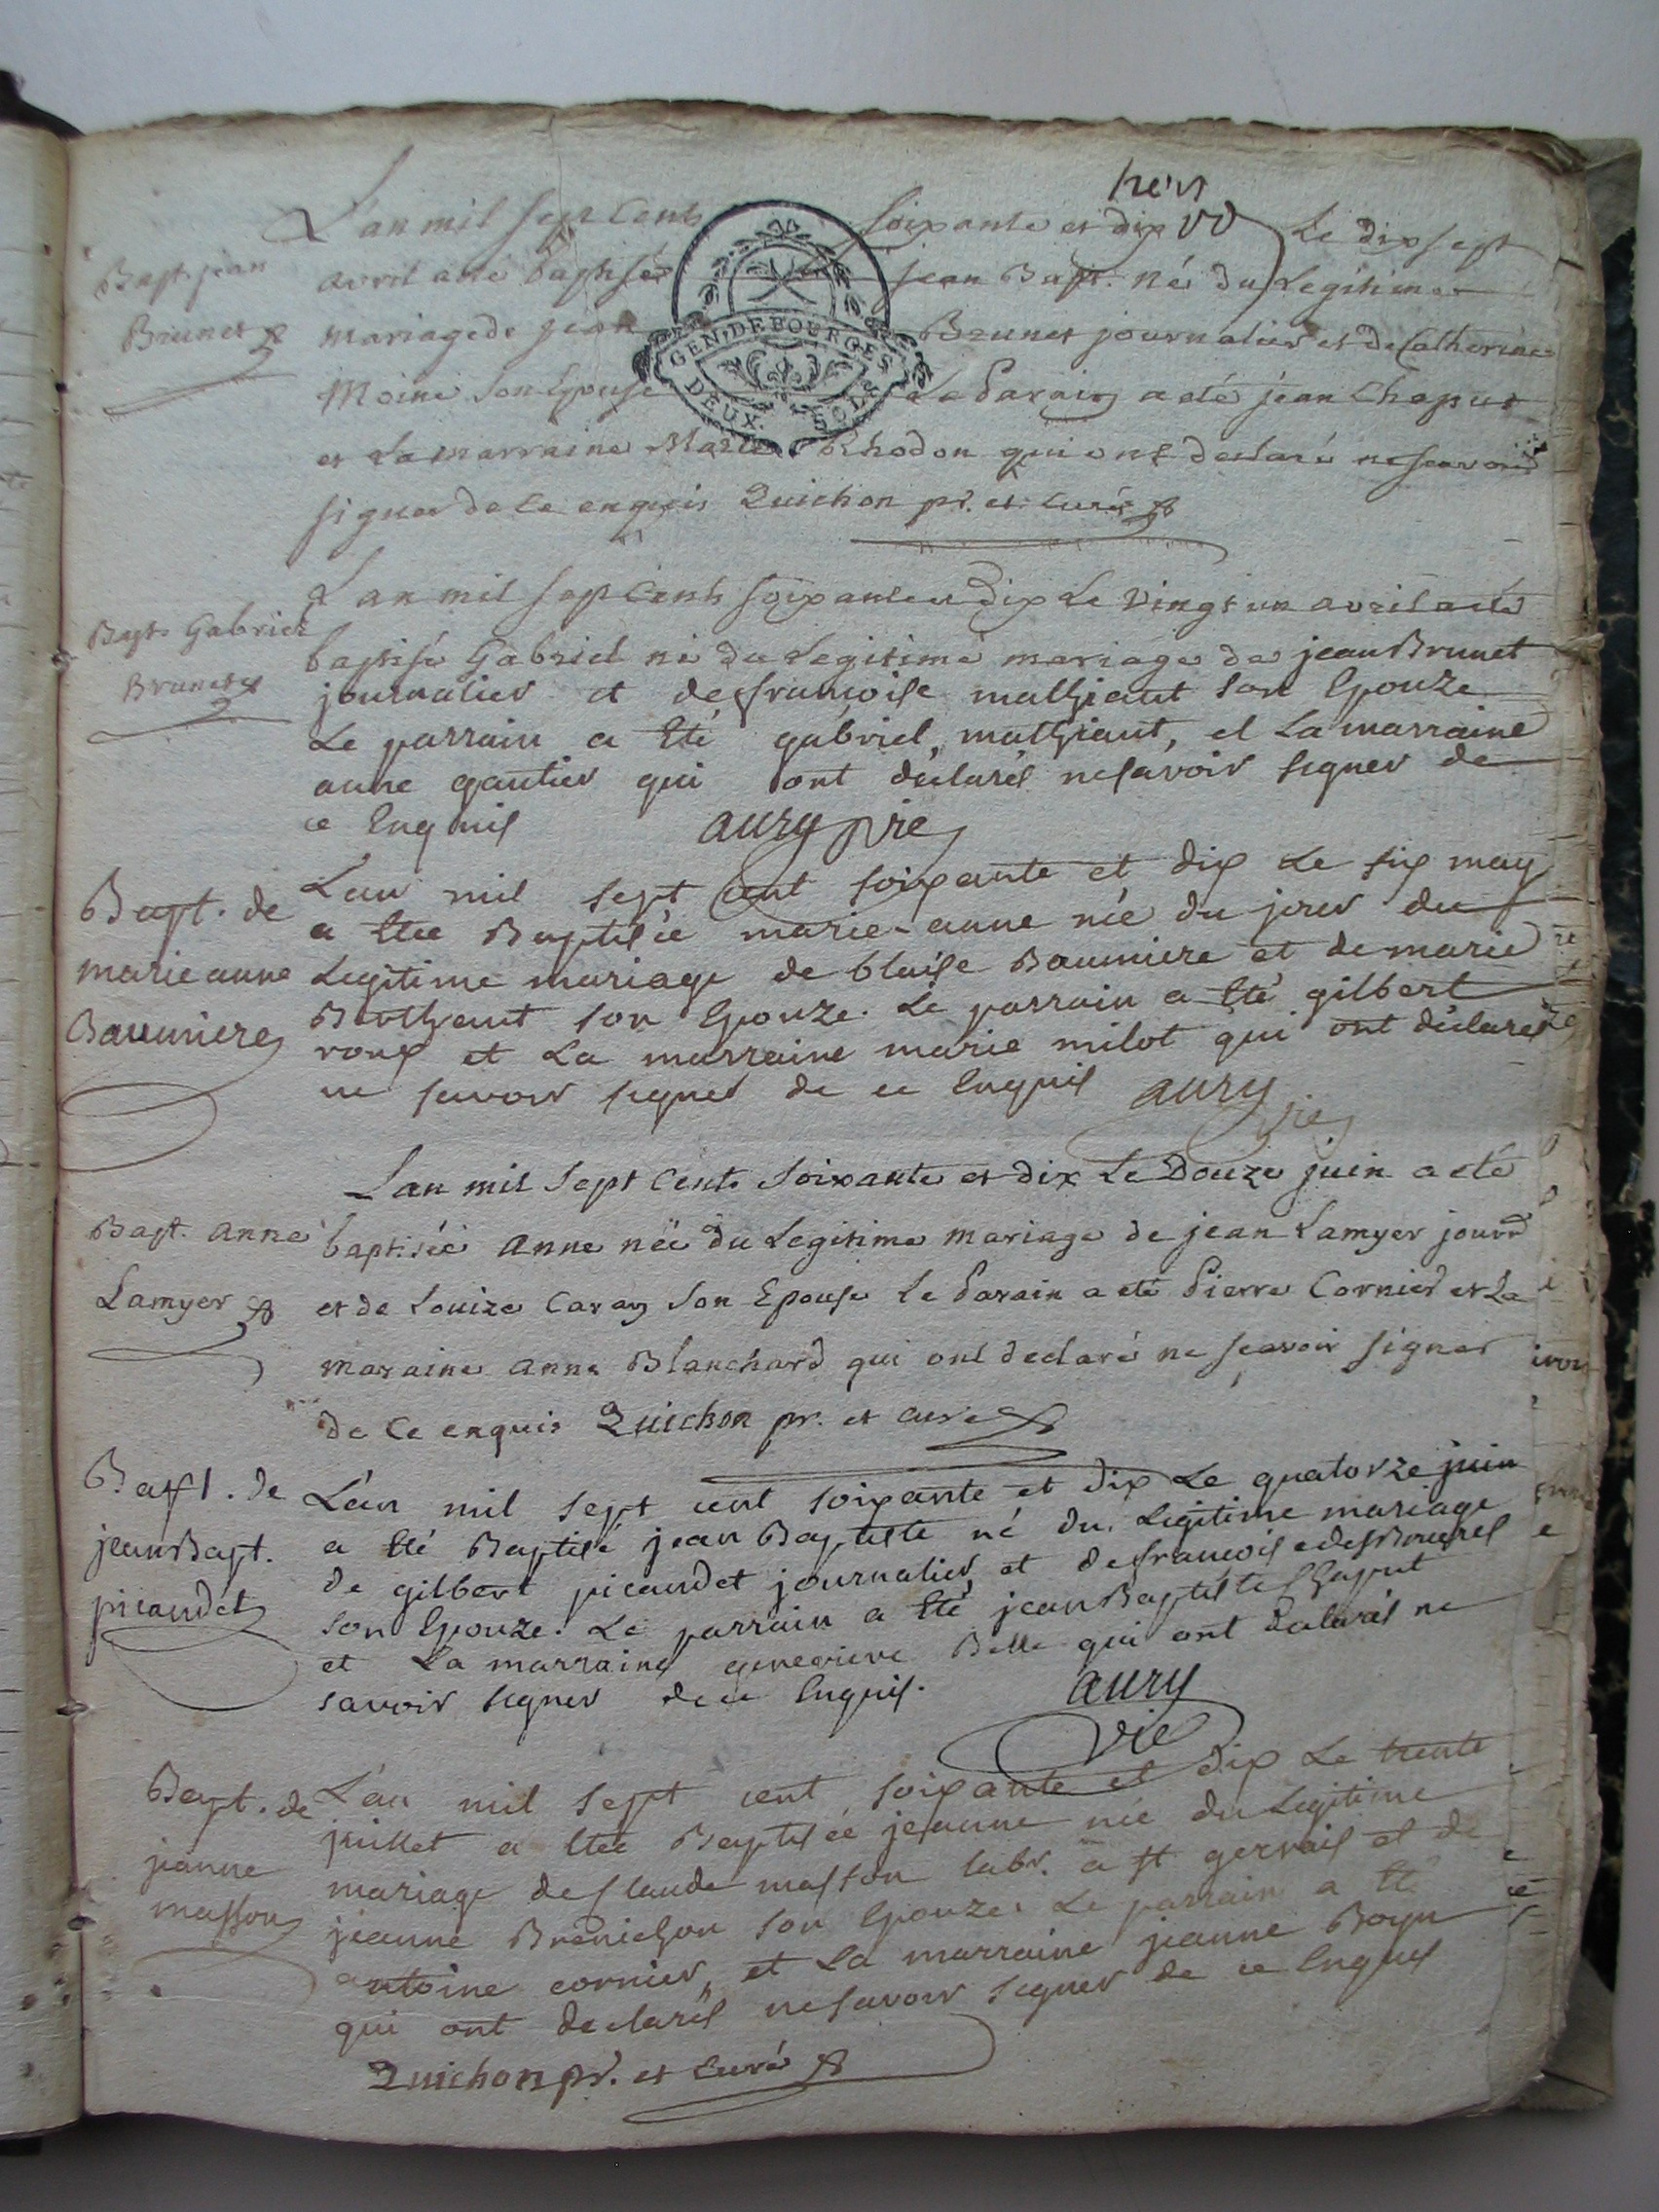 L'an mil sept Cents soixante et dix Le dix sept
Bapt. jean
Brunet
avril a été baptisé jean Bapt. né du Legitime
mariage de jean Brunet journalier et de Catherine
Moine son Epouse Le Parain a été jean Chaput
GEN. DE BOURGES
DEUX. SOLS
et La marraine Marie Rhodon qui ont declaré ne scavoir
signer de ce enquis Quichon pr. et curé
Bapt. Gabriel
Brunet
L'an mil sept Cents soixante et dix Le vingt un avril a été
baptisé Gabriel né du Legitime mariage de jean Brunet
journalier et de françoise mathiaut son Epouze
Le parrain a Eté gabriel mathiaut, et La marraine
anne gautier qui ont déclarés ne savoir signer de
ce Enquis aury vre
Bapt. de
marie anne
Baumiere
L'an mil sept cent soixante et dix Le six may
a Etee Baptisée marie-anne née du jour du
Legitime mariage de blaise Baumiere et de marie
Berthaut son Epouze. Le parrain a Eté gilbert
roux et La marraine marie milot qui ont déclarés
ne savoir signer de ce Enquis aury
vre
Bapt. Anne
Lamyer
L'an mil sept Cents soixante et dix Le Douze juin a été
baptisée Anne née du Legitime mariage de jean Lamyer journ
et de Louize Caray son Epouse Le Parain a été Pierre Cornier et La
maraine Anne Blanchard qui ont declaré ne scavoir signer
de Ce enquis Quichon pr. et curé
Bapt. de
jean Bapt.
picaudet
L'an mil sept cent soixante et dix Le quatorze juin
a Eté Baptisé jean Baptiste né du Legitime mariage
de gilbert picaudet journalier, et de francoise desBourses
son Epouze. Le parrain a Eté jean Baptiste Chaput
et La marraine genevieve Belle qui ont déclarés ne
savoir signer de ce Enquis. aury
vre
Bapt. de
jeanne
masson
L'an mil sept cent soixante et dix Le trente
juillet a Etee Baptisée jeanne née du Legitime
mariage de Claude masson labr. a st gervais et de
jeanne Brenichon son Epouze. Le parrain a Eté
antoine cornier, et La marraine jeanne Boyn
qui ont declarés ne savoir signer de ce Enquis
Quichon pr. et Curé